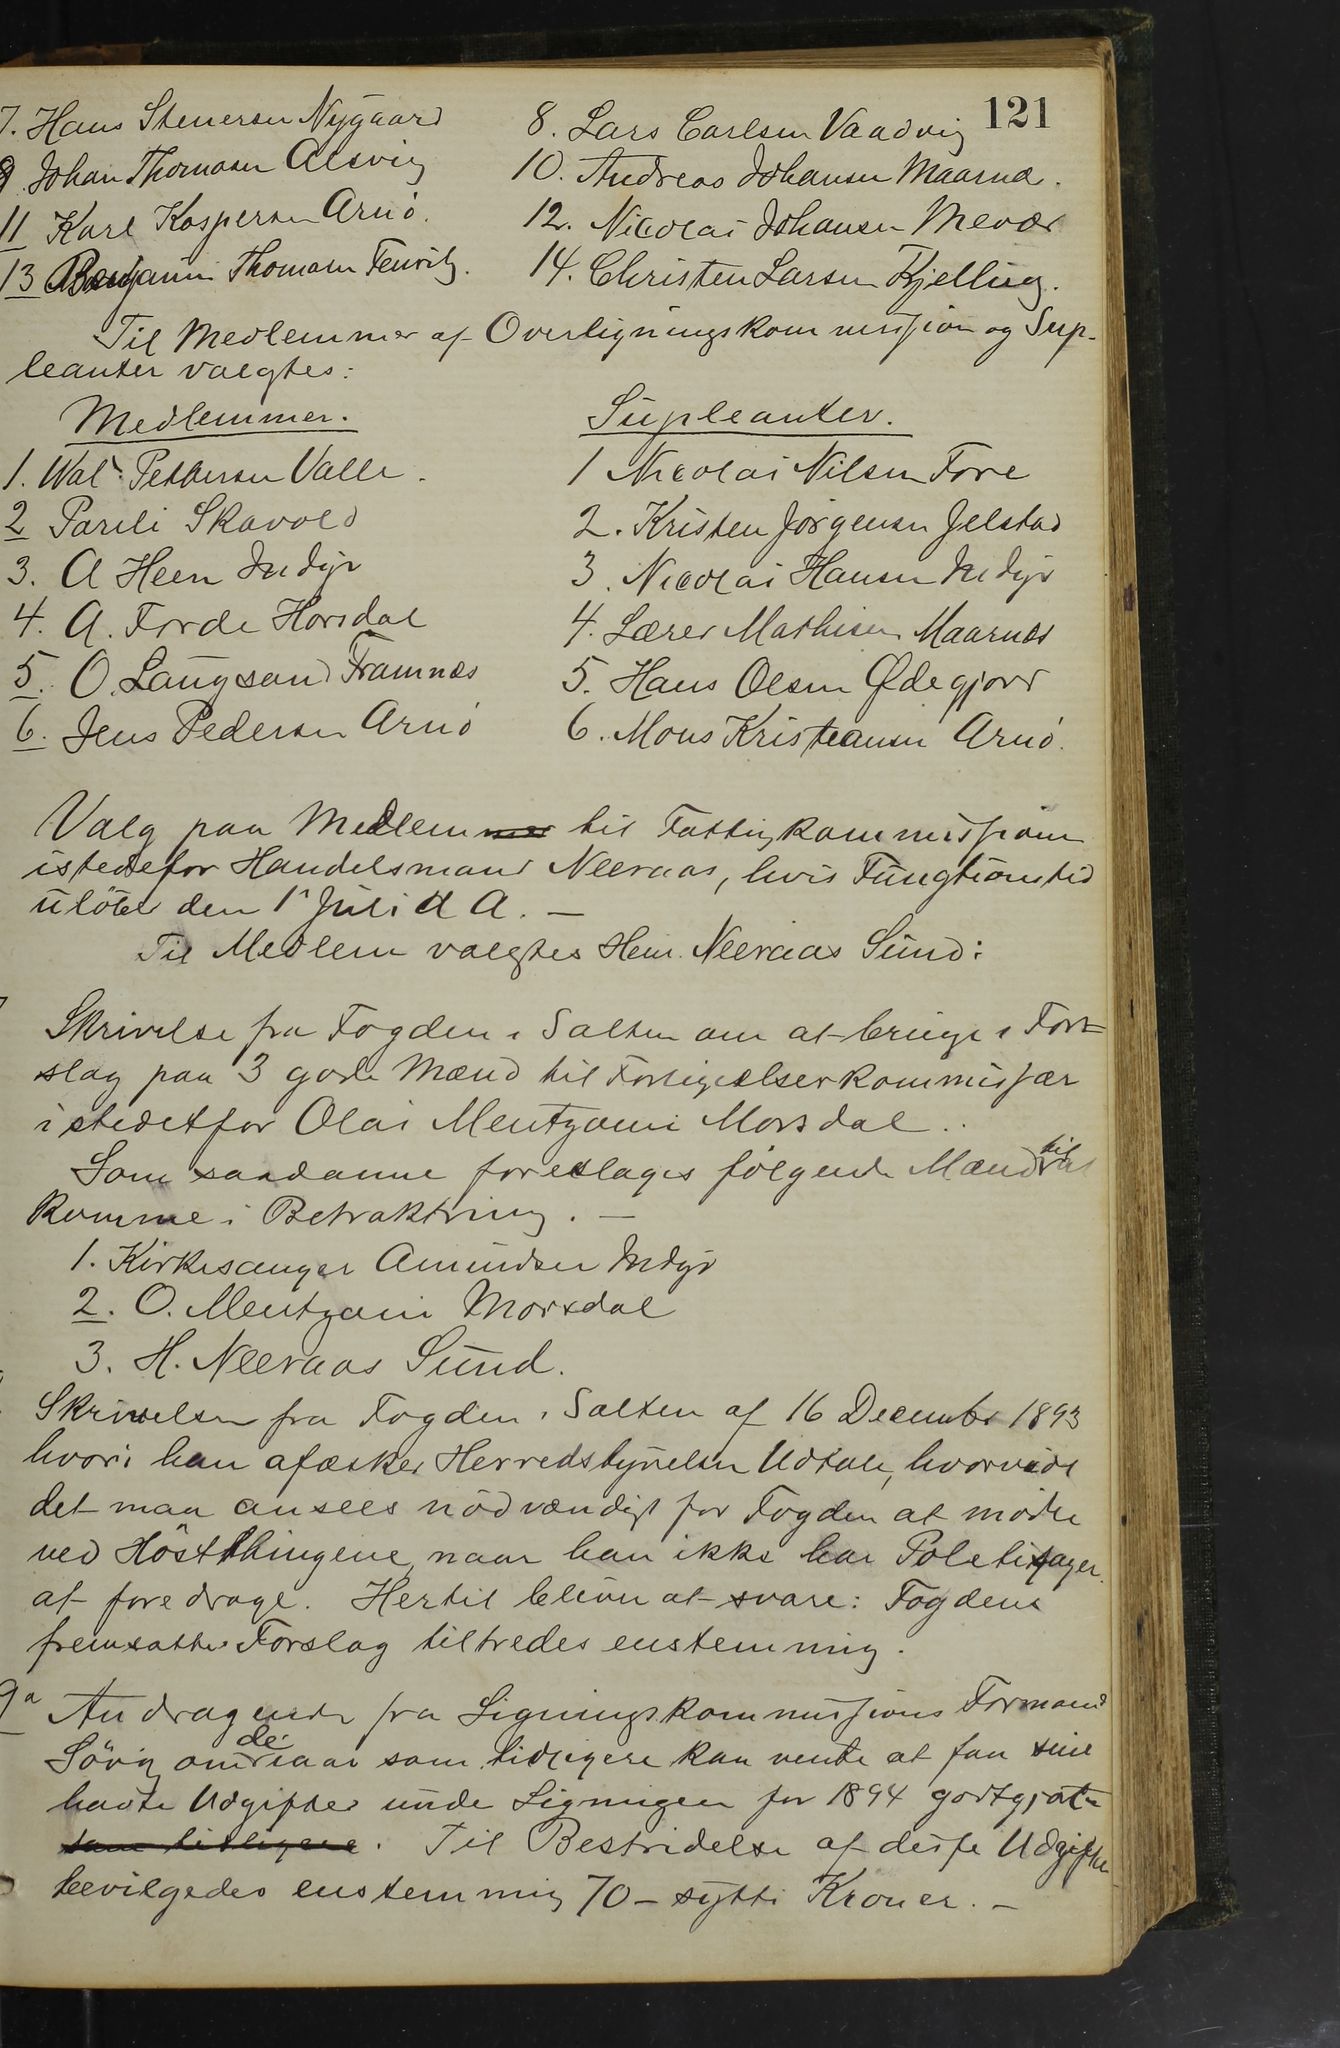 121
7. Hans Stenersen Nygaard 8. Lars Carlsen Vaadvig
9. Johan Thomasen Alsvig 10. Andreas Johansen Maarnæs.
11 Karl Kaspersen Arnö. 12. Nicolai Johansen Mevær
13 Benjamin Thomasen Fenvik. 14. Christen Larsen Kjelling.
Til Medlemmer af Overligningskommission og Sup-
leanter valgtes:
Medlemmer. Supleanter.
1. Wald. Pettersen Valle. 1 Nicolai Nilsen Fore
2 Pareli Skavold 2. Kristen Jörgensen Jelstad
3. A Heen Indyr 3. Nicolai Hansen Indyr
4. A. Forde Horsdal 4. Lærer Mathisen Maarnæs
5. O. Laugsand Framnæs 5. Hans Olsen Ødegjord
6. Jens Pedersen Arnö 6. Mons Kristeansen Arnö.
Valg paa Medlemmer til Fattigkommission
istedefor Handelsmand Neeraas, hvis Fungtionstid
ulöber den 1ste Juli d A. —
Til Medlem valgtes Hein. Neeraas Sund:
Skrivelse fra Fogden i Salten om at bringe i For-
slag paa 3 gode Mænd til Forligelseskommissær
istedetfor Olai Mentzoni Morsdal..
Som saadanne foreslages fölgende Mænd til at
komme i Betraktning. —
1. Kirkesanger Amundsen Indyr
2. O. Mentzoni Morsdal
3. H. Neeraas Sund.
Skrivelsen fra Fogden i Salten af 16 December 1893
hvori han afæsker Herredstyrelsen Udtale, hvorvidt
det maa ansees nödvændigt for Fogden at möde
ved Höstthingene, naar han ikke har Poletisager
at foredrage. Hertil bliver at svare: Fogdens
fremsatte Forslag tiltredes enstemmig.
9a Andragende fra Ligningskommissions Formand
Sövig om de iaar som tidligere kan vente at faa sine
havte Udgifter unde Ligningen for 1894 godtgjort
som tidligere. Til Bestridelse af disse Udgifter
bevilgedes enstemmig 70 – sytti Kroner. –